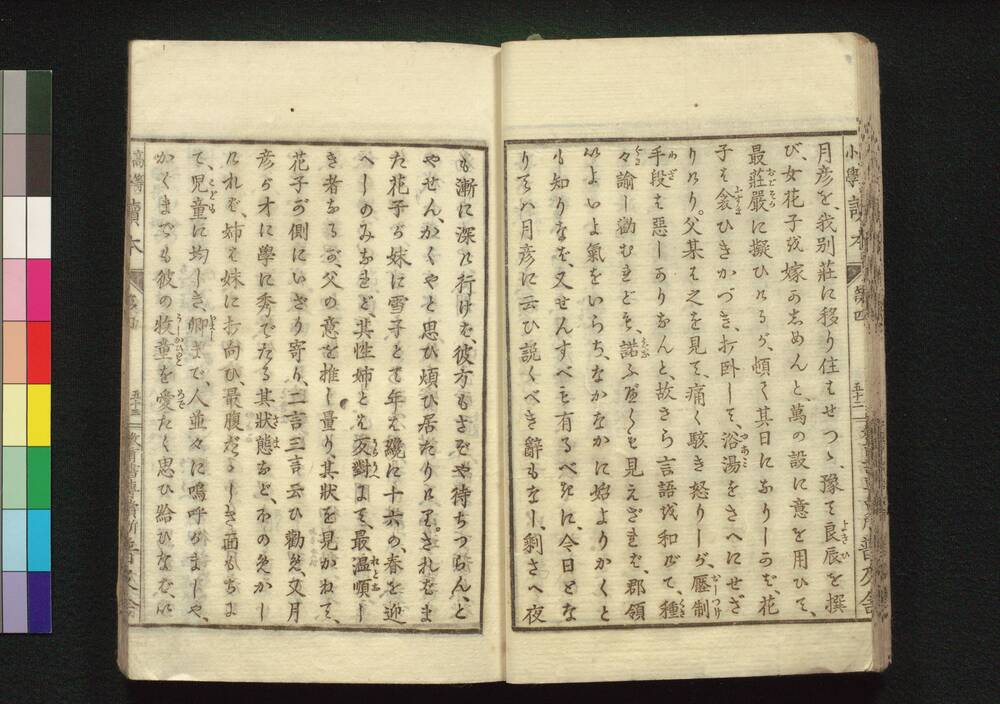 小學讀本
第四
五十二
月彦を、我別莊に移り住はせつゝ、豫て良辰を撰
び、女花子を嫁あはしめんと、萬の設に意を用ひて、
最莊嚴に擬ひけるが、頓て其日になりしかば、花
子は衾ひきかづき、打臥して、浴湯をさへにせざ
りけり。父某は之を見て、痛く駭き怒りしが、壓制
手段は惡しかりなんと、故さら言語を和げて、種
々諭し勸むれども、諾ふべくも見えざれば、郡領
はよいよ氣をいらち、なかなかに始よりかくと
も知りなば、又せんすべも有るべきに、今日とな
りては月彦に云ひ説くべき辭もなし、剩さへ夜
も漸に深け行けば、彼方もさぞや待ちつらん、と
やせん、かくやと思ひ煩ひ居たりけり。さればま
た花子が妹に雪子とて年は纔に十六の、春を迎
へしのみなれど、其性姉とは反對にて、最温順し
き者なるが、父の意を推し量り、其状を見かねて、
花子が側にいざり寄り、二言三言云ひ勸め、又月
彦が才に學に秀でたる其状態など、ほのめかし
ければ、姉は妹に打向ひ、最腹だゝしき面もちに
て、児童に均しき、卿まで、人並々に嗚呼がましや、
かくまでも彼の牧童を愛たく思ひ給ひなば、い
讀本
五十三